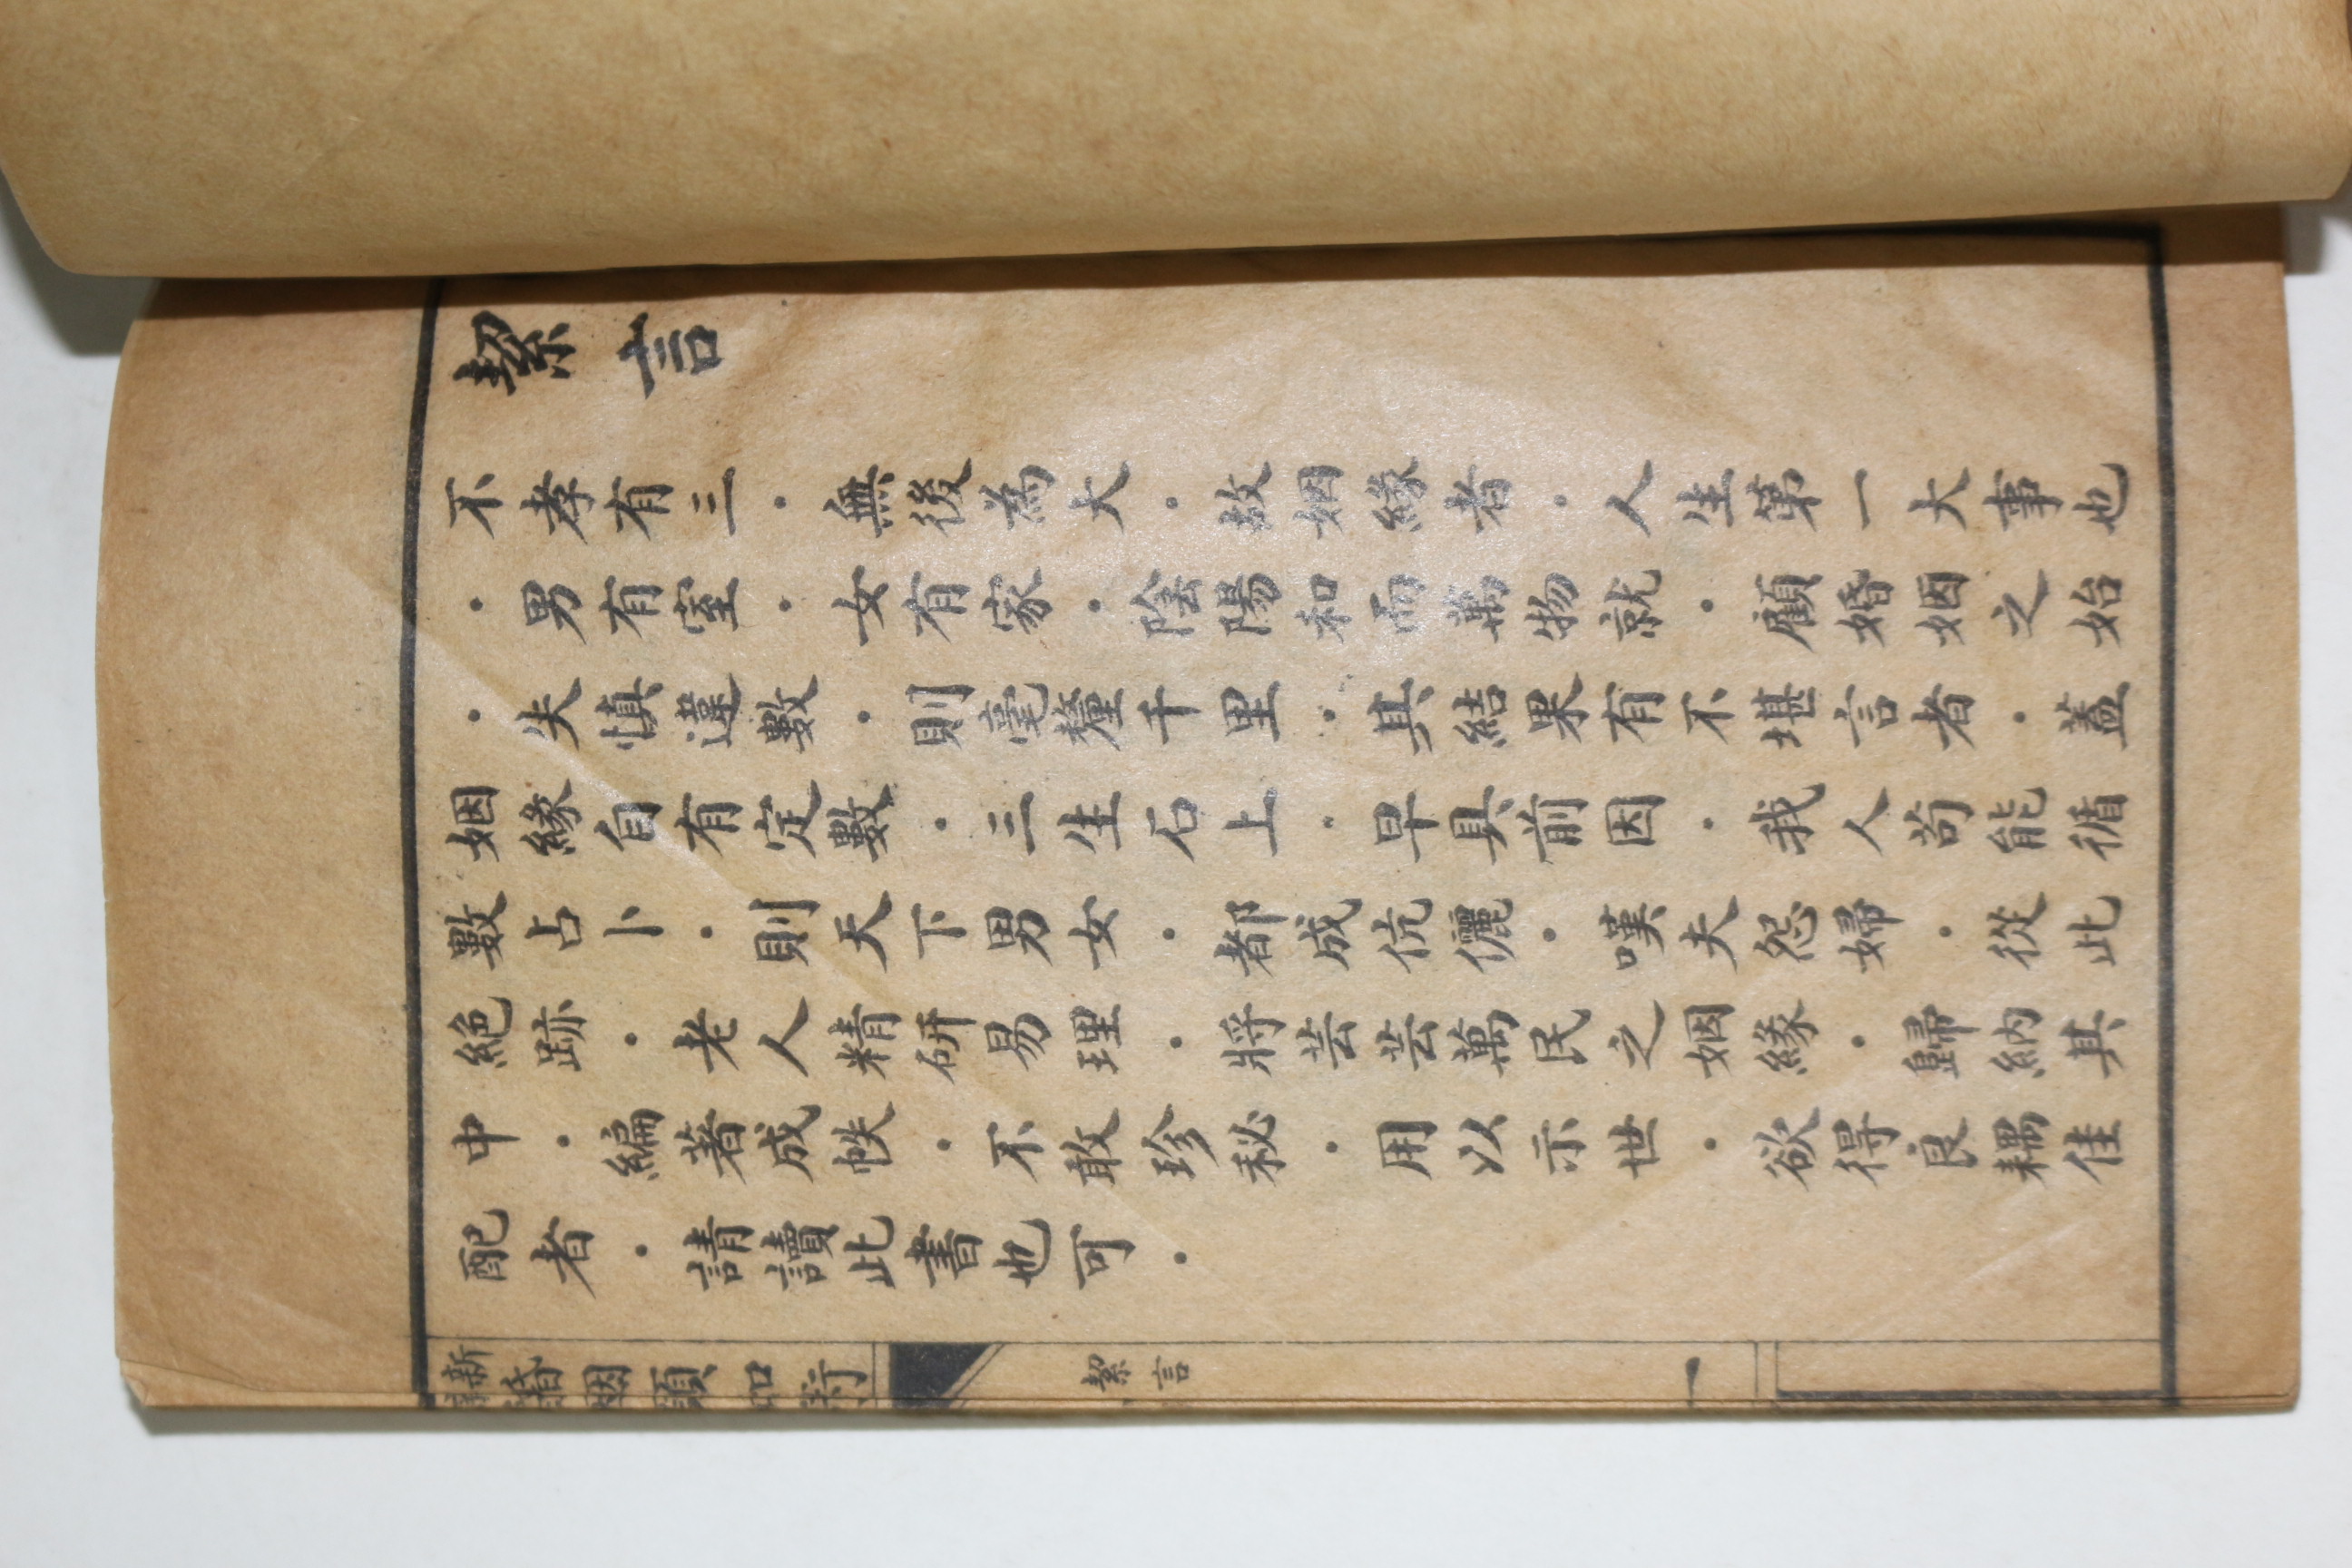 絜言
不孝有三・無後為大・故姻緣者・人生第一大事也
・男有室・女有家・陰陽和而萬物就・顧婚姻之始
・失慎違數・則毫釐千里・其結果有不堪言者・蓋
姻緣自有定數・三生石上・早具前因・我人苟能循
數占卜・則天下男女・都成伉儷・嘆夫怨婦・從此
絕跡・老人精研易理・將芸芸萬民之姻緣・歸納其
中・編著成帙・不敢珍秘・用以示世・欲得良耦佳
配者・請讀此書也可・
新婚姻預知術
絜言
一